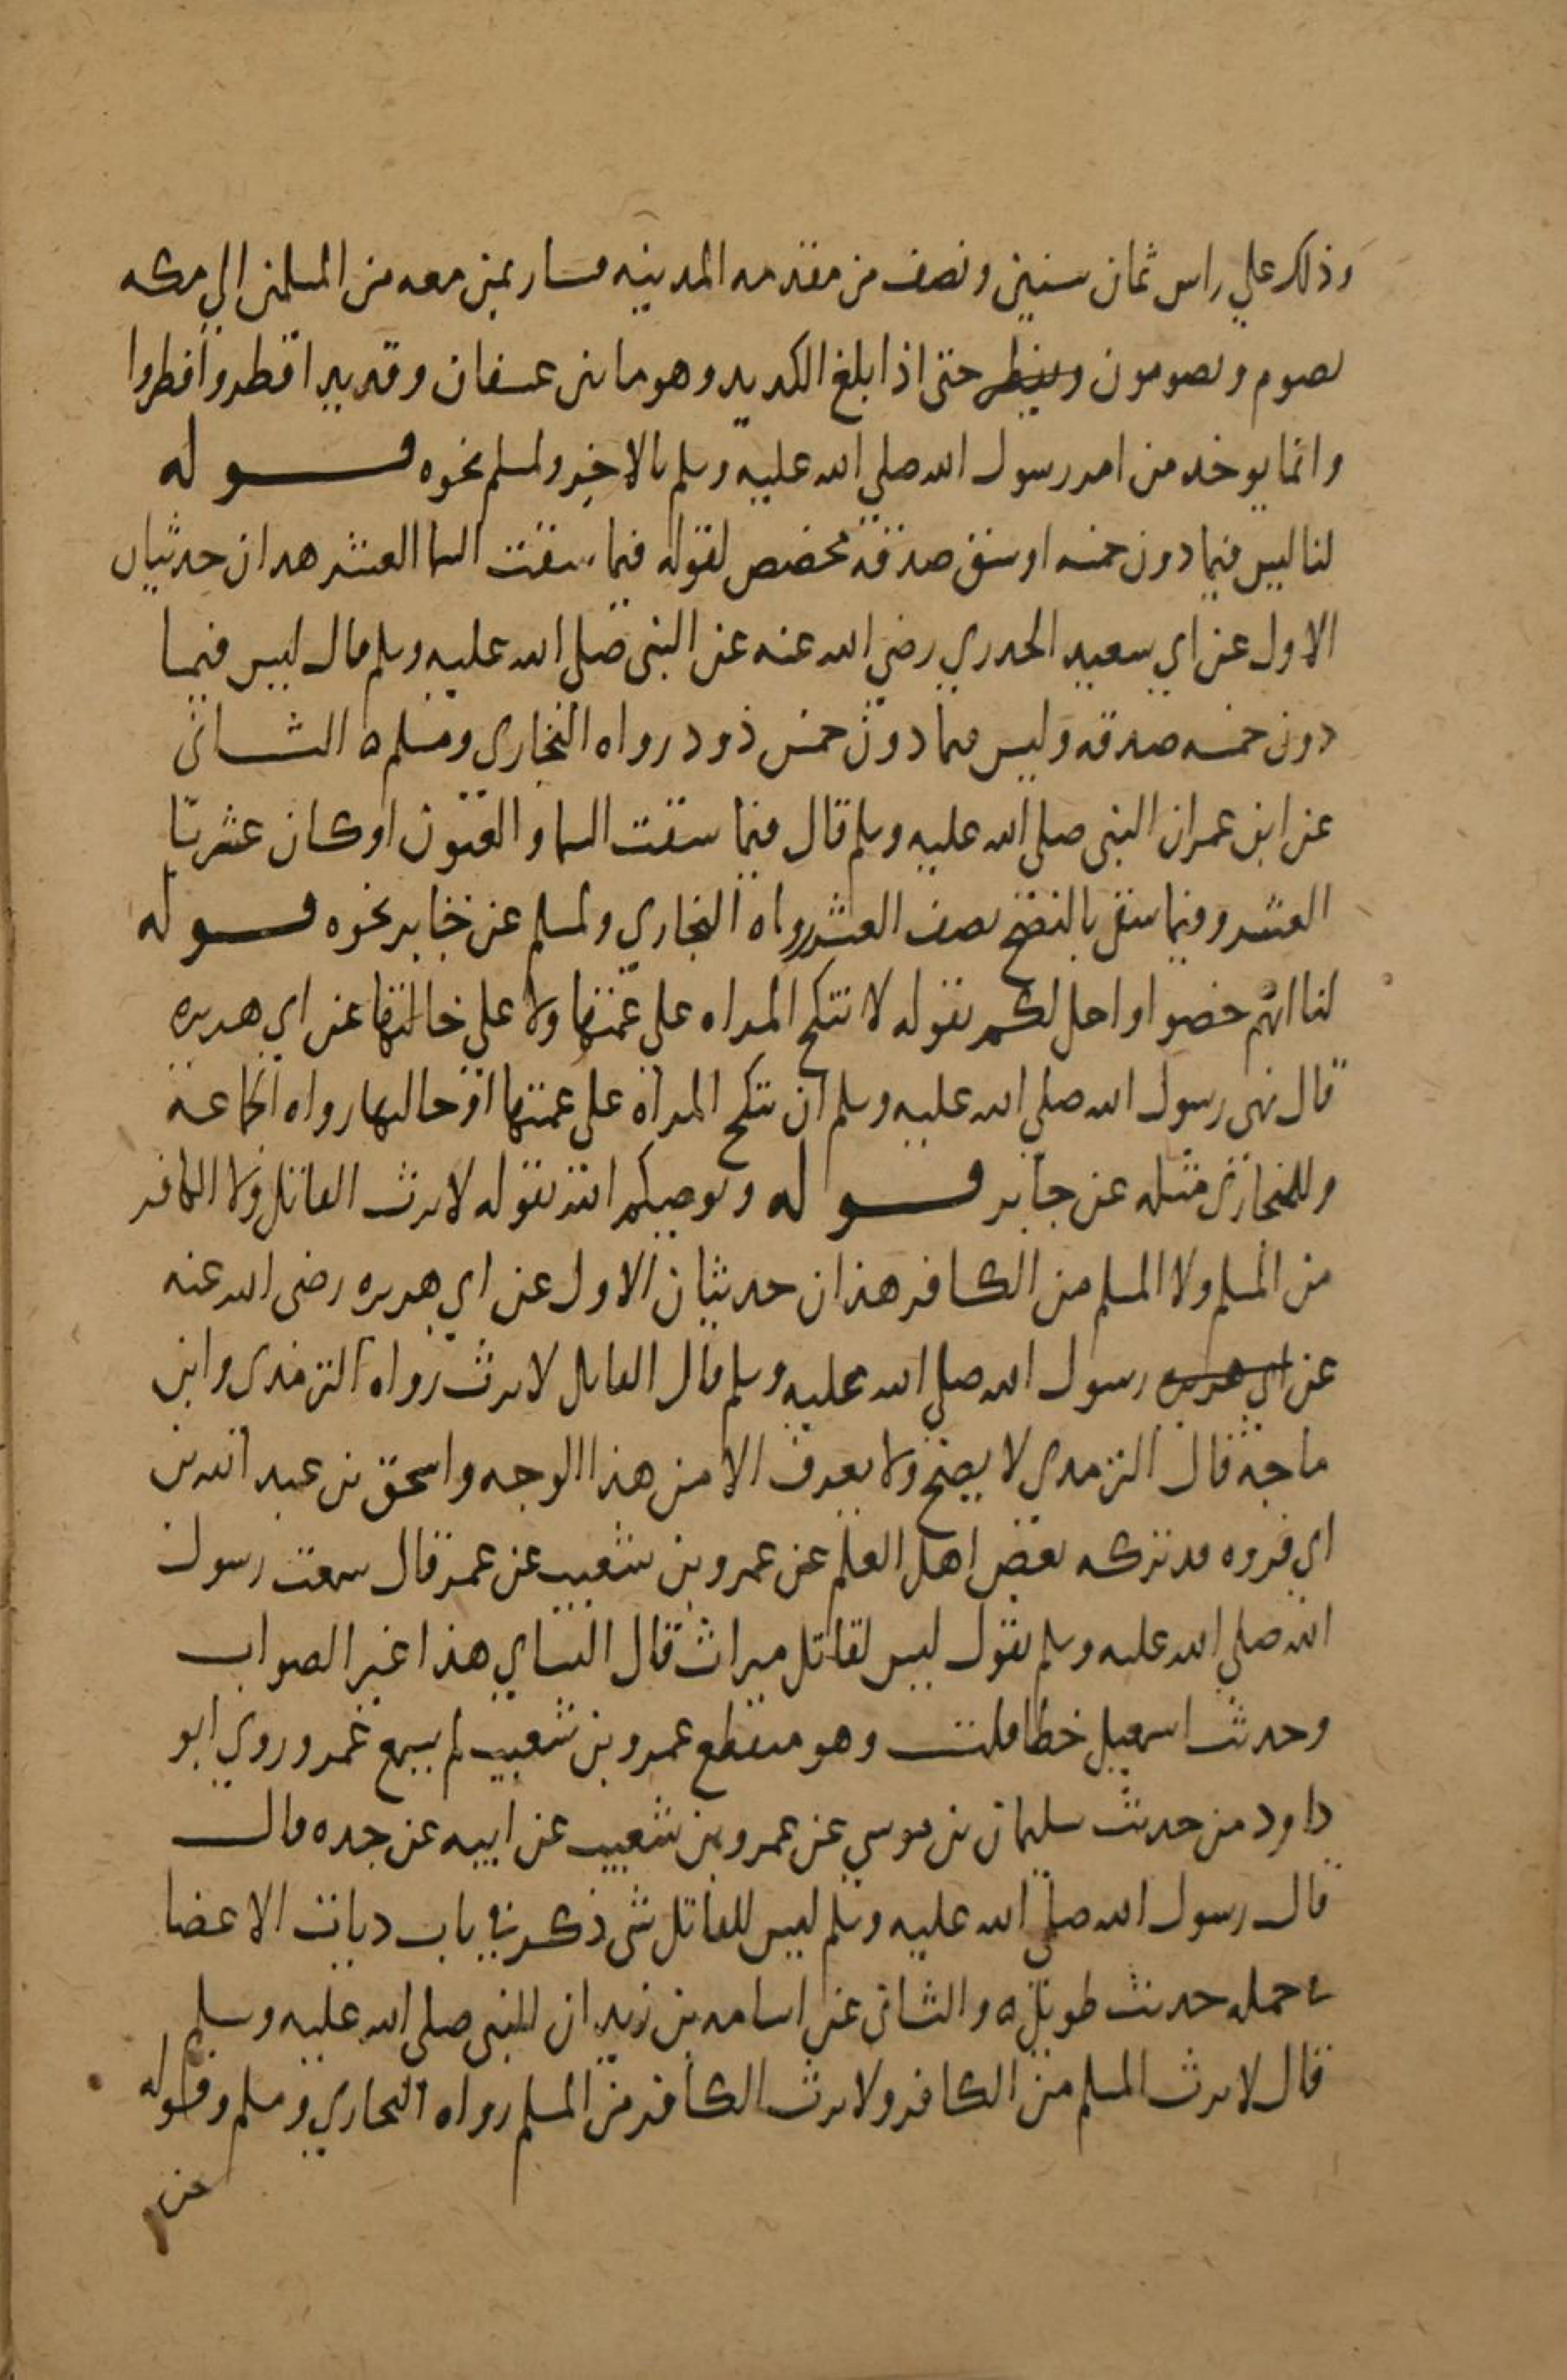 وذلك علي راس ثمان سنين ونصف من مقدمه المدينه فسار بمن معه من المسلمين الي مكه
يصوم ويصومون ويفطر حتى اذا بلغ الكديد وهو ما بين عسفان وقديد افطر وافطروا
وانما يوخذ من امر رسول الله صلي الله عليه وسلم بالاخر ولمسلم نحوه قوله
لنا ليس فيما دون خمسه اوسق صدقه مخصص لقوله فيما سقت السما العشر هذان حديثان
الاول عن ابي سعيد الخدري رضي الله عنه عن النبي صلي الله عليه وسلم قال ليس فيما
دون خمسه صدقه وليس فيما دون خمس ذود رواه البخاري ومسلم ه الثاني
عن ابن عمر ان النبي صلي الله عليه وسلم قال فيما سقت السما والعيون او كان عشريا
العشر وفيما سقي بالنضح نصف العشر رواه البخاري ولمسلم عن جابر نحوه قوله
لنا انهم خصوا واحل لكم بقوله لا تنكح المراه علي عمتها ولا علي خالتها عن ابي هريره
قال نهى رسول الله صلي الله عليه وسلم ان تنكح المراة علي عمتها او خالتها رواه الجماعة
وللبخاري مثله عن جابر قوله ويوصيكم الله بقوله لا يرث القاتل ولا الكافر
من المسلم ولا المسلم من الكافر هذان حديثان الاول عن ابي هريره رضي الله عنه
عن ابي هريره رسول الله صلي الله عليه وسلم قال القاتل لا يرث رواه الترمذي وابن
ماجة قال الترمذي لا يصح ولا يعرف الا من هذا الوجه واسحق بن عبد الله بن
ابي فروه قد تركه بعض اهل العلم عن عمرو بن شعيب عن عمر قال سمعت رسول
الله صلي الله عليه وسلم يقول ليس لقاتل ميراث قال النساي هذا غير الصواب
وحديث اسمعيل خطا قلت وهو منقطع عمرو بن شعيب لم يسمع عمر وروي ابو
داود من حديث سليمان بن موسي عن عمرو بن شعيب عن ابيه عن جده قال
قال رسول الله صلي الله عليه وسلم ليس للقاتل شي ذكر في باب ديات الاعضا
في جمله حديث طويل ه والثاني عن اسامه بن زيد ان النبي صلي الله عليه وسلم
قال لا يرث المسلم من الكافر ولا يرث الكافر من المسلم رواه البخاري ومسلم وقوله
من